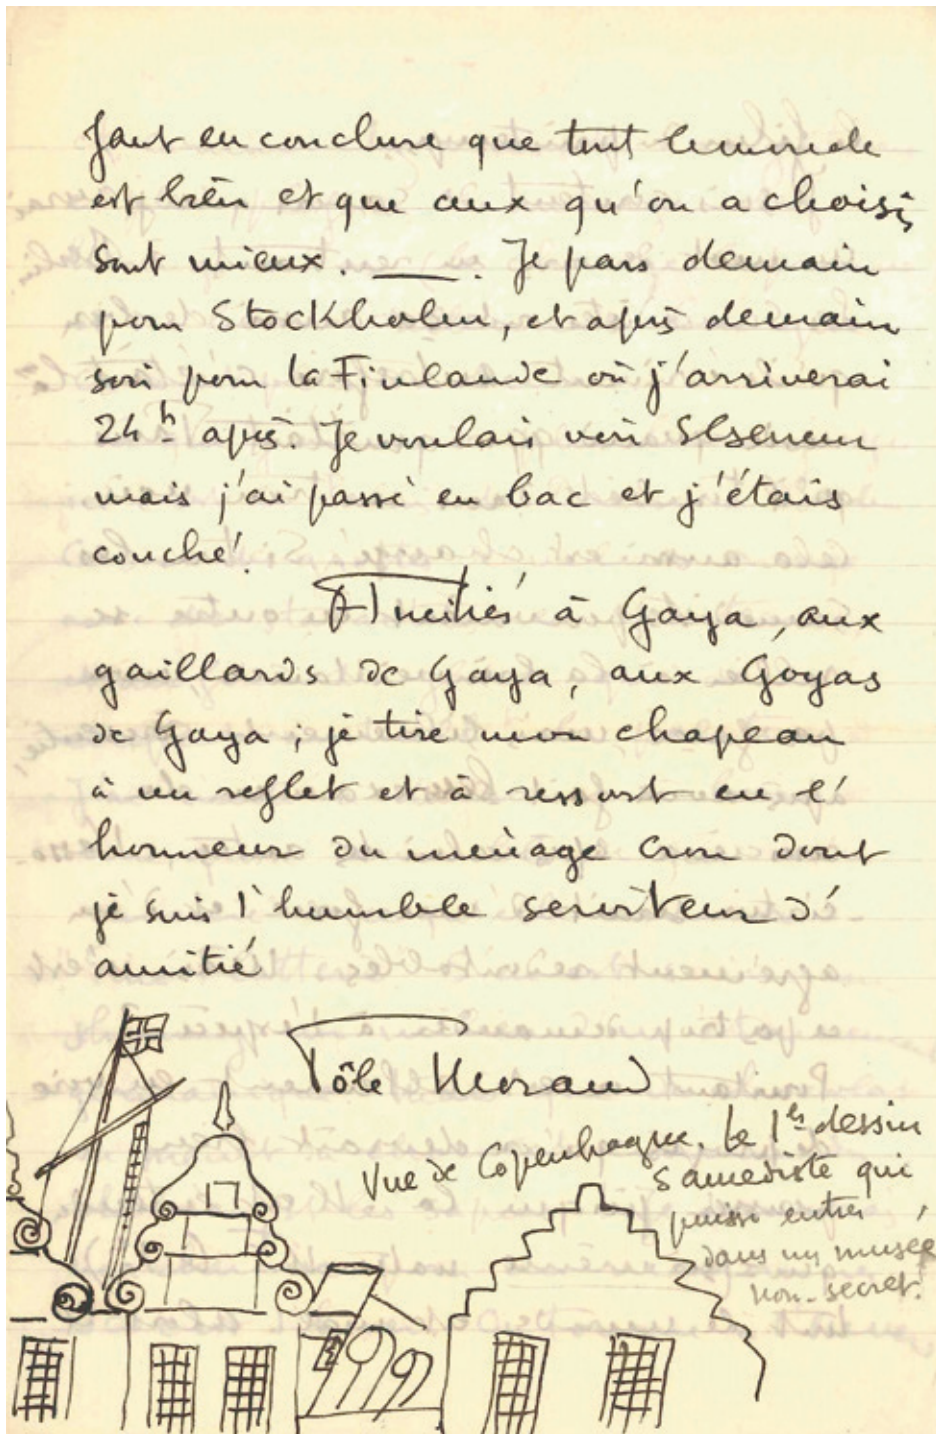 faut en conclure que tout le monde
est bien et que ceux qu'on a choisis
sont mieux. ——. Je pars demain
pour Stockholm, et après demain
soir pour la Finlande où j'arriverai
24h après. Je voulais voir Elseneur
mais j'ai passé en bac et j'étais
couché!
Amitiés à Gaya, aux
gaillards de Gaya, aux Goyas
de Gaya ; je tire mon chapeau
à un reflet et à ressort en l'
honneur du ménage Cron dont
je suis l'humble serviteur d'
amitié
Pôle Morand
Vue de Copenhague. Le 1er dessin
Samediste qui
puisse entrer
dans un musée
non-secret.